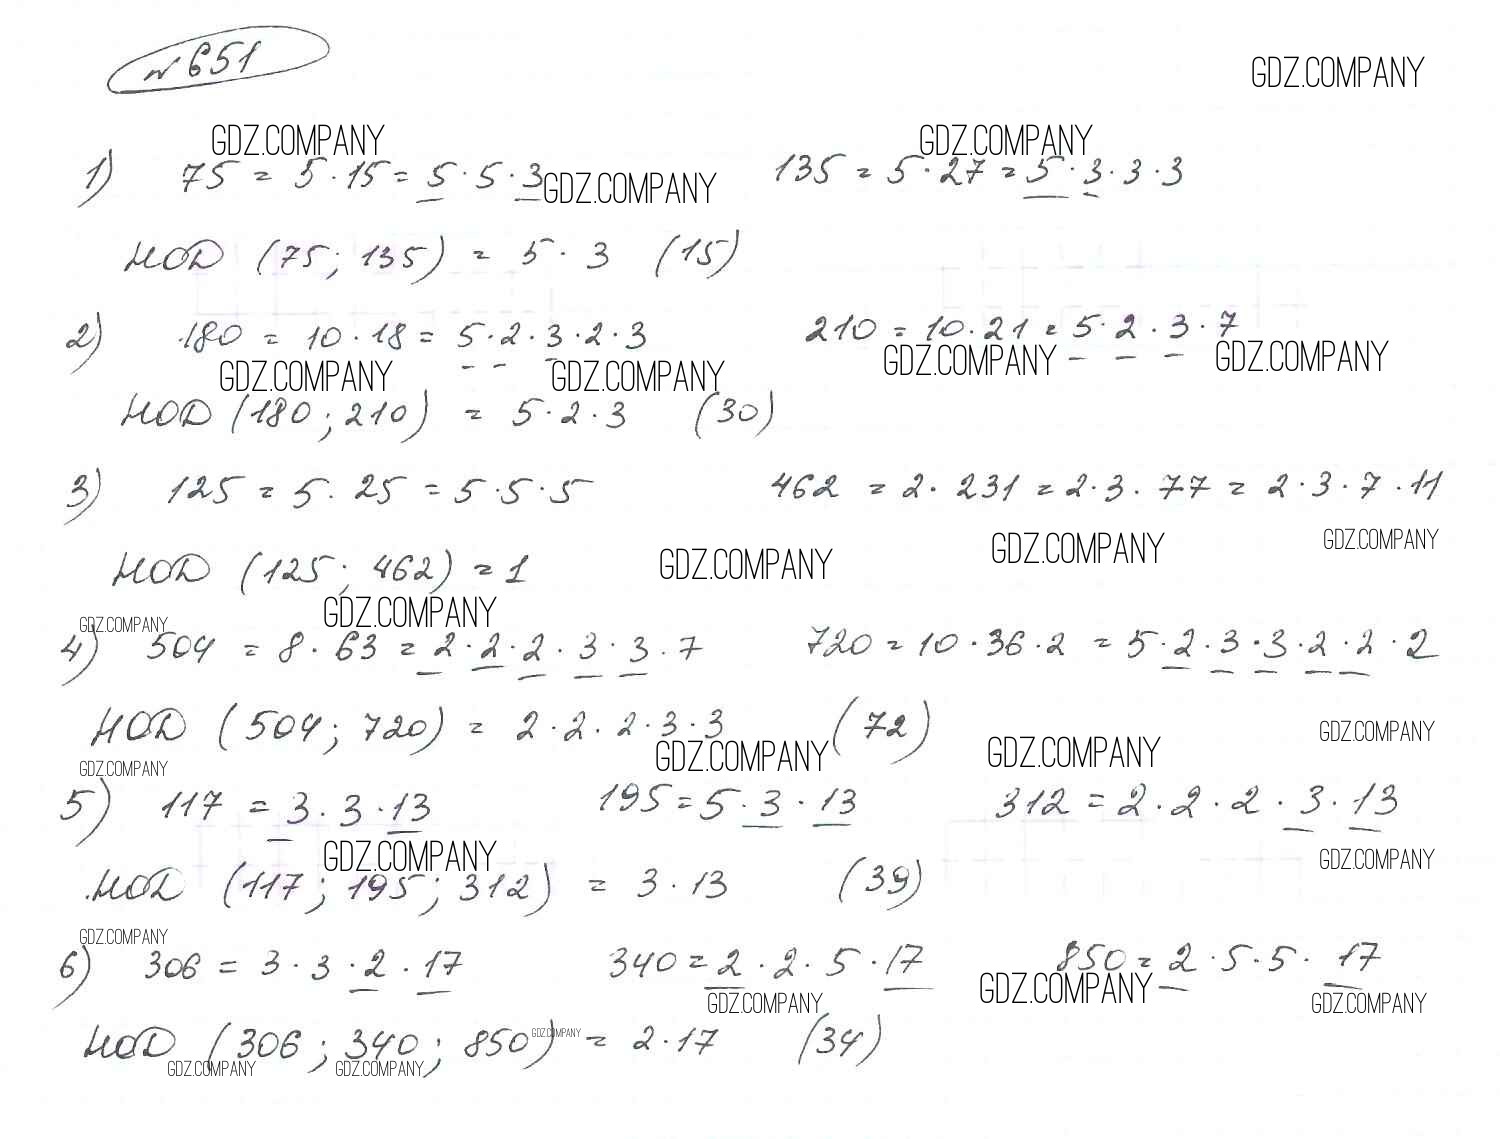 №651
GDZ.COMPANY
GDZ.COMPANY GDZ.COMPANY
1) 75 = 5·15 = 5·5·3 GDZ.COMPANY 135 = 5·27 = 5·3·3·3
НОД (75; 135) = 5·3 (15)
2) 180 = 10·18 = 5·2·3·2·3 210 = 10·21 = 5·2·3·7
GDZ.COMPANY GDZ.COMPANY GDZ.COMPANY GDZ.COMPANY
НОД (180; 210) = 5·2·3 (30)
3) 125 = 5·25 = 5·5·5 462 = 2·231 = 2·3·77 = 2·3·7·11
GDZ.COMPANY GDZ.COMPANY
НОД (125; 462) = 1 GDZ.COMPANY
GDZ.COMPANY GDZ.COMPANY
4) 504 = 8·63 = 2·2·2·3·3·7 720 = 10·36·2 = 5·2·3·3·2·2·2
НОД (504; 720) = 2·2·2·3·3 (72) GDZ.COMPANY
GDZ.COMPANY GDZ.COMPANY GDZ.COMPANY
5) 117 = 3·3·13 195 = 5·3·13 312 = 2·2·2·3·13
GDZ.COMPANY GDZ.COMPANY
НОД (117; 195; 312) = 3·13 (39)
GDZ.COMPANY
6) 306 = 3·3·2·17 340 = 2·2·5·17 850 = 2·5·5·17
GDZ.COMPANY GDZ.COMPANY GDZ.COMPANY
НОД (306; 340; 850) GDZ.COMPANY = 2·17 (34)
GDZ.COMPANY GDZ.COMPANY